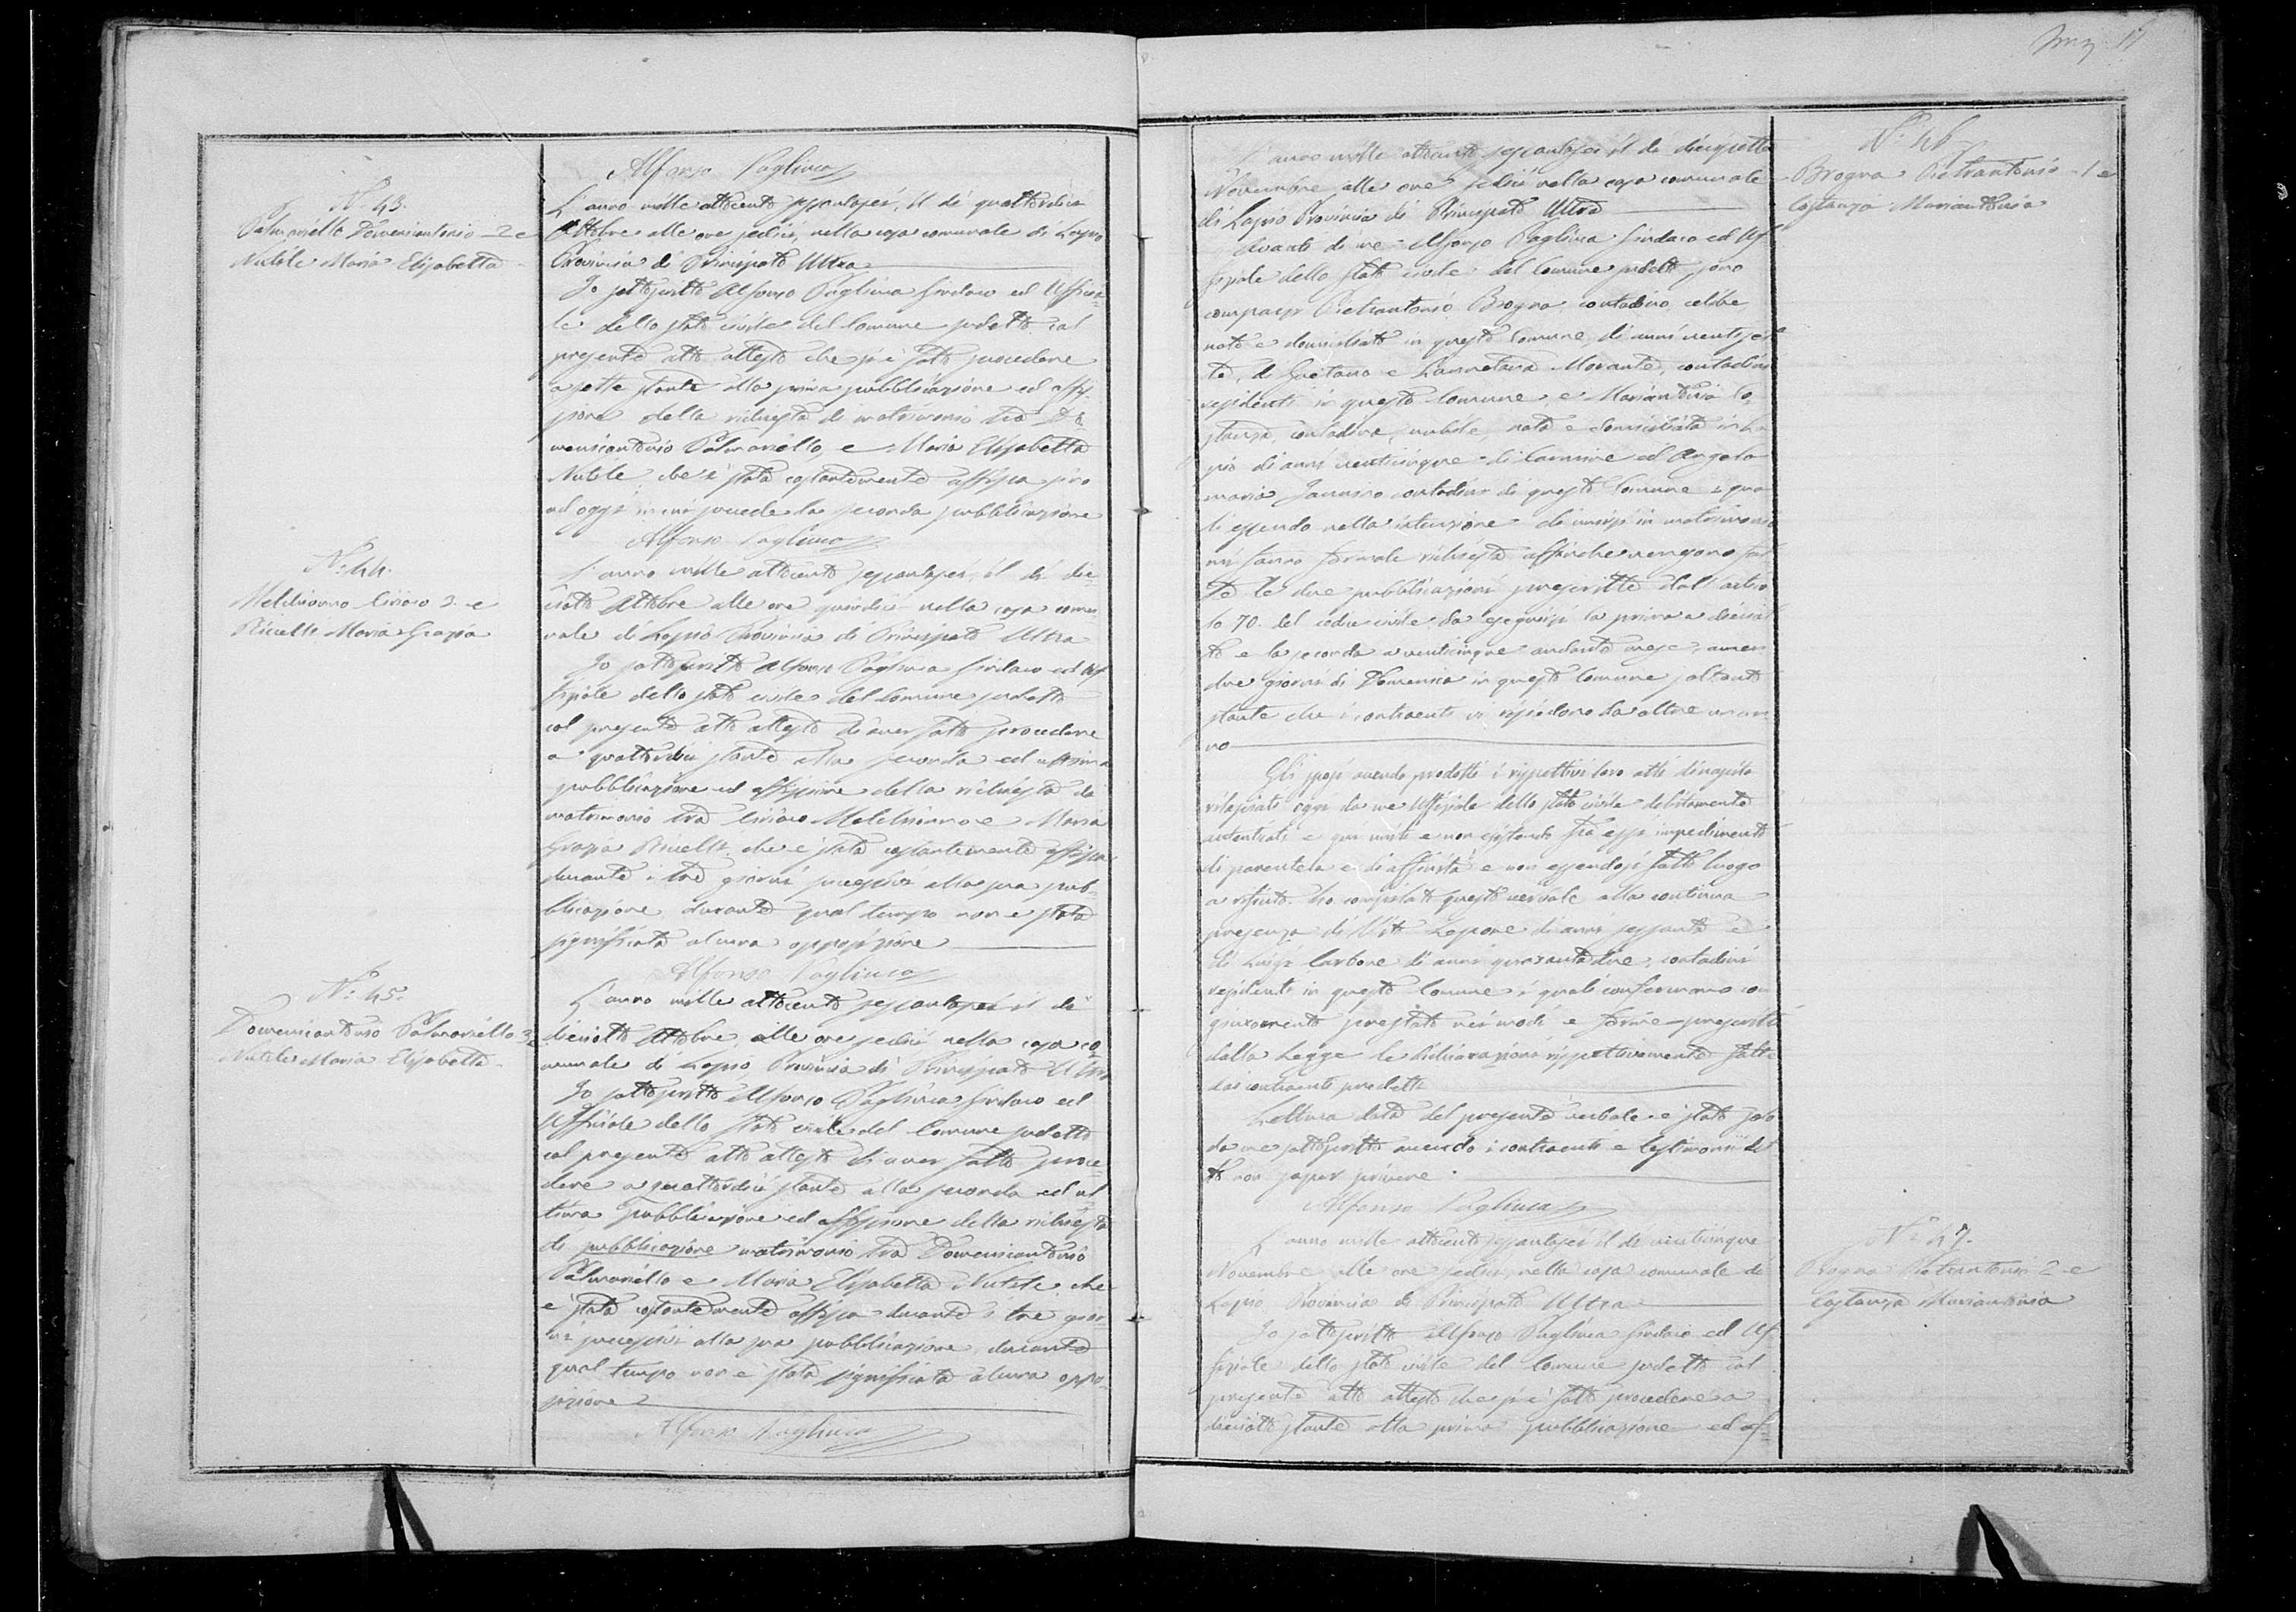 Alfonso Pagliuca
N.° 43.
Palmariello Domenicantonio 2 e
Nutile Maria Elisabetta
L'anno mille ottocento sessantasei, il dì quattordici
Ottobre alle ore sedici, nella casa comunale di Lapio
Provincia di Principato Ultra
Io sottoscritto Alfonso Pagliuca Sindaco ed Uffizia=
le dello stato civile del Comune sudetto col
presente atto attesto che si è fatto procedere
a sette stante alla prima pubblicazione ed affis=
sione della richiesta di matrimonio tra Do=
menicantonio Palmariello, e Maria Elisabetta
Nutile che è stata costantemente affissa sino
ad oggi in cui procede la seconda pubblicazione
Alfonso Pagliuca
N.° 44.
Melchionno Ciriaco 3. e
Maria Grazia
L'anno mille ottocento sessantasei, il dì die
ciotto Ottobre alle ore quindici nella casa comu
nale di Lapio Provincia di Principato Ultra
Io sottoscritto Alfonso Pagliuca Sindaco ed Uf
fiziale dello stato civile del Comune sudetto
col presente atto attesto di aver fatto procedere
a quattordici stante alla seconda ed ultima
pubblicazione ed affissione della richiesta di
matrimonio tra Ciriaco Melchionno e Maria
Grazia che è stata costantemente affissa
durante i tre giorni successivi alla sua pub=
blicazione, durante qual tempo non è stata
significata alcuna opposizione
Alfonso Pagliuca
N.° 45.
Domenicantonio Palmariello 3 e
Nutile Maria Elisabetta
L'anno mille ottocento sessantasei il dì
dieciotto Ottobre, alle ore sedici nella casa co
munale di Lapio, Provincia di Principato Ultra
Io sottoscritto Alfonso Pagliuca Sindaco ed
Uffiziale dello stato civile del Comune sudetto
col presente atto attesto di aver fatto proce=
dere a quattordici stante alla seconda ed ul
tima pubblicazione ed affissione della richiesta
di pubblicazione matrimonio tra Domenicantonio
Palmariello e Maria Elisabetta Nutile, che
è stata costantemente affissa durante i tre gior=
ni successivi alla sua pubblicazione, durante
qual tempo non è stata significata alcuna oppo=
sizione
Alfonso Pagliuca
17
N.° 46
Brogna Pietrantonio 1 e
Costanza Mariantonia
L'anno mille ottocento sessantasei il dì diecisette
Novembre alle ore sedici nella casa comunale
di Lapio Provincia di Principato Ultra
Avanti di me Alfonso Pagliuca Sindaco ed Uf
fiziale dello stato civile del Comune sudetto sono
comparsi Pietrantonio Brogna contadino celibe
nato e domiciliato in questo Comune di anni ventiset
te, di Gaetano e Lauretana Morante, contadini
residenti in questo Comune, e Mariantonia Co=
stanza, contadina, nubile, nata e domiciliata in La
pio di anni venticinque di Carmine ed Angela
maria Jannino contadini di questo Comune i qua
li essendo nella intenzione di unirsi in matrimonio
mi fanno formale richiesta affinchè vengono fat
te le due pubblicazioni prescritte dall'artico
lo 70. del codice civile, da eseguirsi la prima a dieciot
to e la seconda a venticinque andante mese, amen
due giorni di Domenica in questo Comune soltanto
stante che i contraenti vi risiedono da oltre un an
no
Gli sposi avendo prodotti i rispettivi loro atti di nascita
rilasciati oggi da me Uffiziale dello stato civile debitamente
autenticati e qui uniti e non esistendo fra essi impedimento
di parentela e di affinità e non essendosi fatto luogo
a rifiuto. ho compilato questo verbale alla continua
presenza di Vito Lepore di anni sessanta e
di Luigi Carbone di anni quarantadue, contadini
residenti in questo Comune i quali confermano con
giuramento prestato nei modi e forme prescritte
dalla Legge le dichiarazioni rispettivamente fatte
dai contraenti predetti
Lettura data del presente verbale, è stato sot
da me sottoscritto avendo i contraenti e testimonii det
to non saper scrivere.
Alfonso Pagliuca
N.° 47.
Brogna Pietrantonio 2 e
Costanza Mariantonia
L'anno mille ottocento sessantasei il dì venticinque
Novembre alle ore sedici, nella casa comunale di
Lapio, Provincia di Principato Ultra
Io sottoscritto Alfonso Pagliuca Sindaco ed Uf
fiziale dello stato civile del Comune sudetto col
presente atto attesto che si è fatto procedere a
dieciotto stante alla prima pubblicazione ed af=